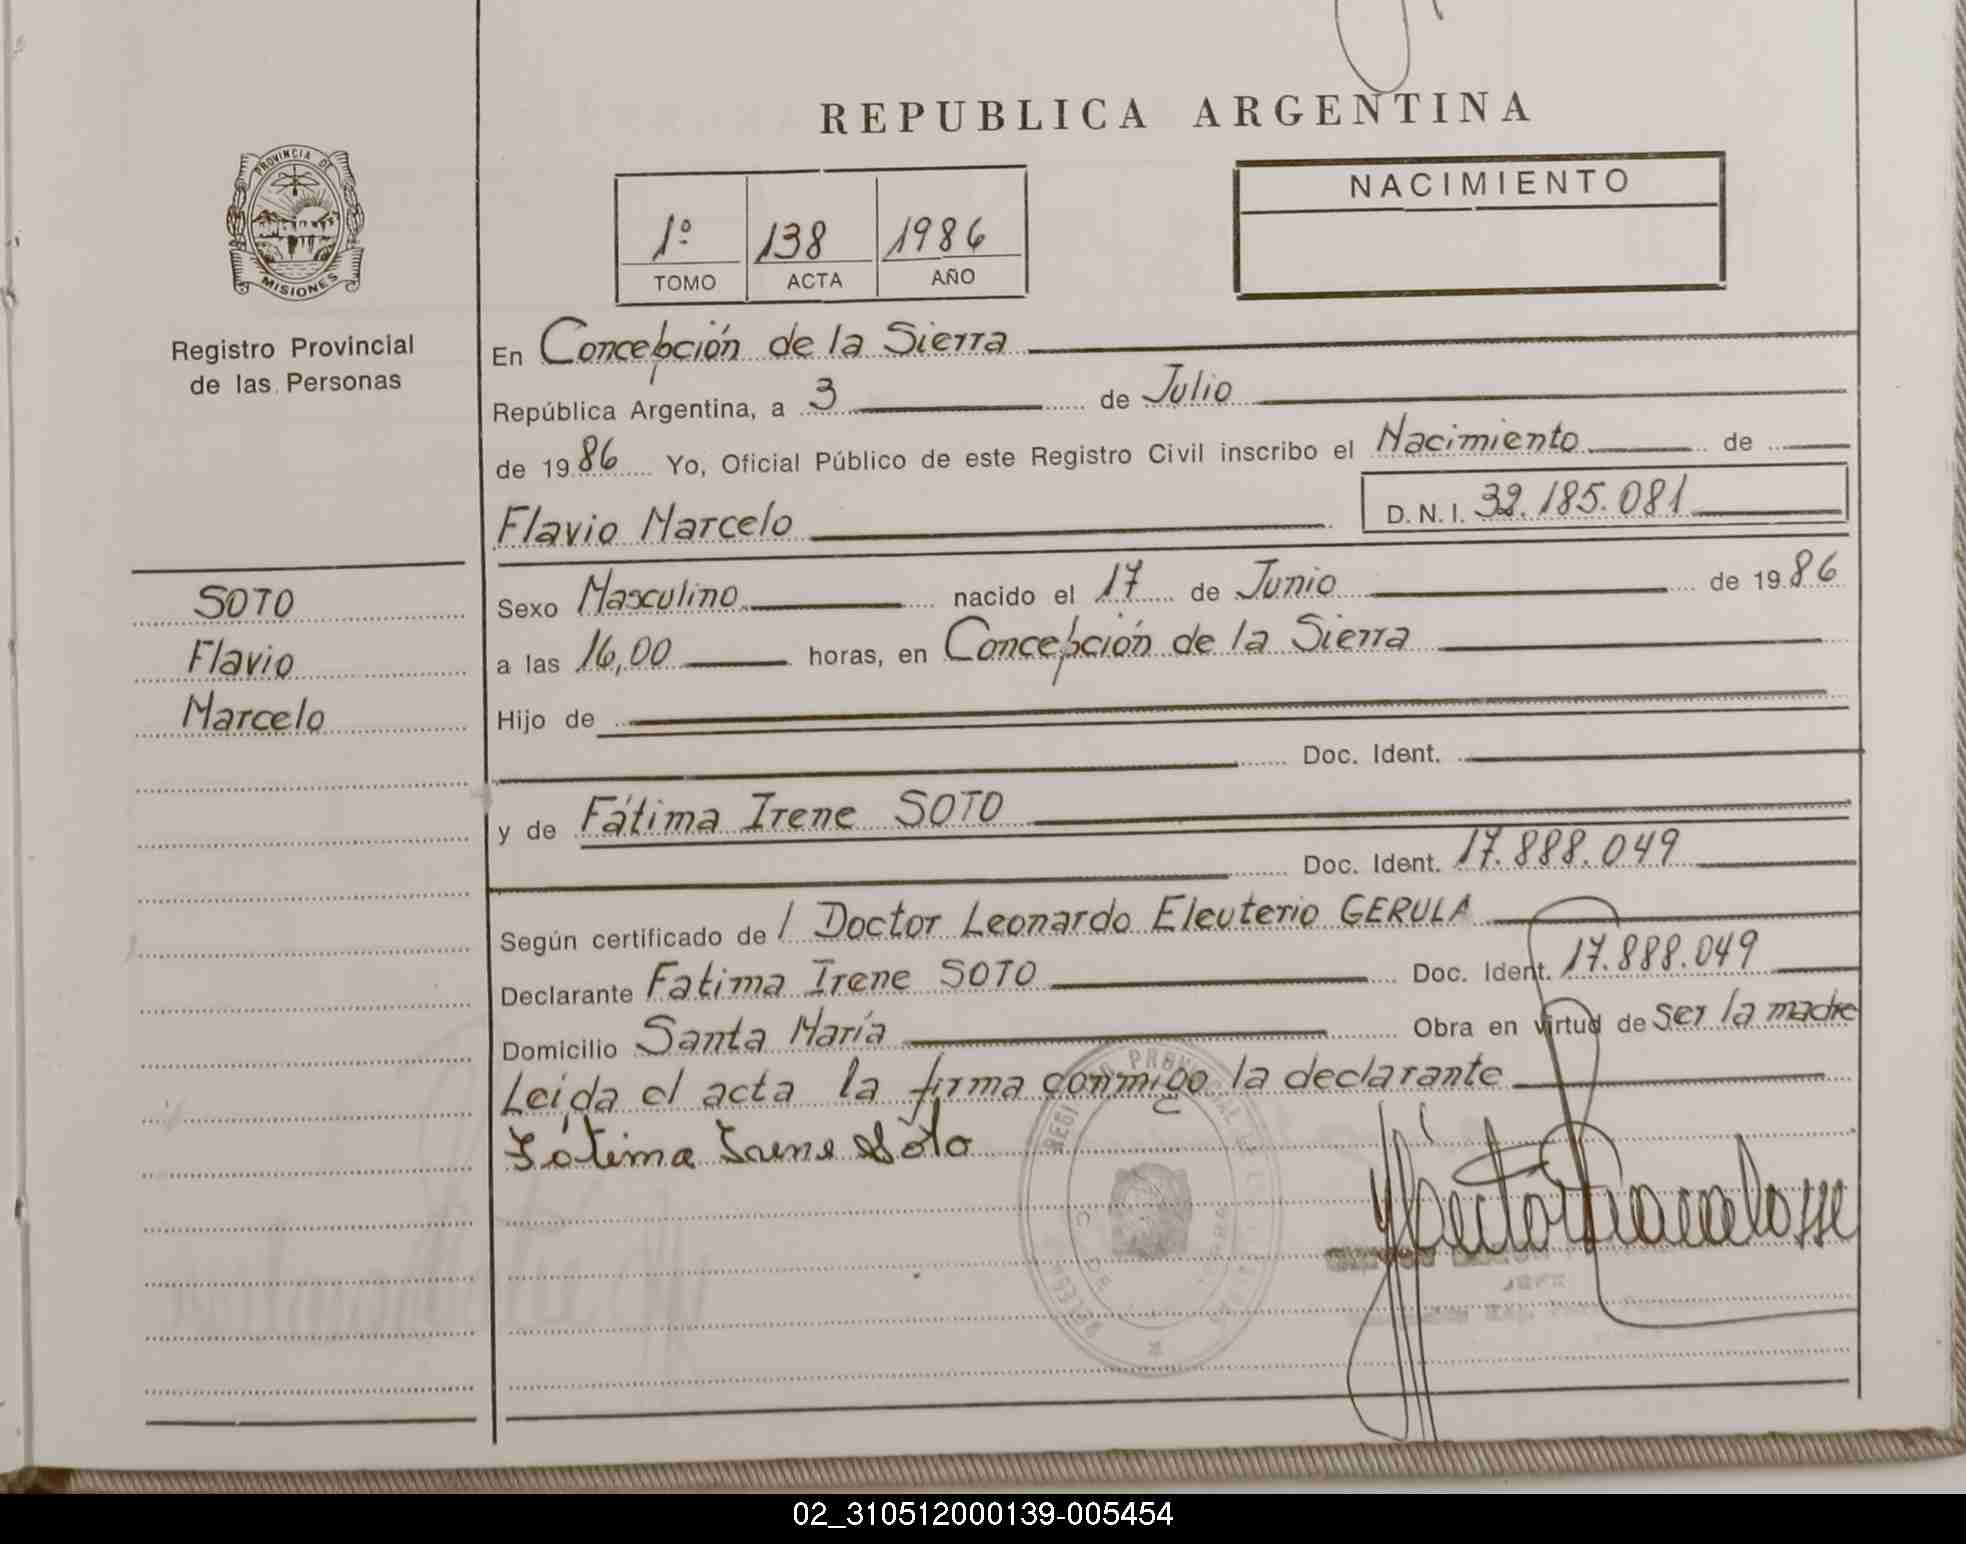 REPUBLICA ARGENTINA
PROVINCIA DE
MISIONES
Registro Provincial
de las Personas
1º 138 1986
TOMO ACTA AÑO
NACIMIENTO
En Concepción de la Sierra
República Argentina, a 3 de Julio
de 1986 Yo, Oficial Público de este Registro Civil inscribo el Nacimiento de
Flavio Marcelo D.N.I. 32.185.081
SOTO
Flavio
Marcelo
Sexo Masculino nacido el 17 de Junio de 1986
a las 16,00 horas, en Concepción de la Sierra
Hijo de
Doc. Ident.
y de Fátima Irene SOTO
Doc. Ident. 17.888.049
Según certificado de l Doctor Leonardo Eleuterio GERULA
Declarante Fatima Irene SOTO Doc. Ident. 17.888.049
Domicilio Santa María Obra en virtud de ser la madre
Leída el acta la firma conmigo la declarante
Fátima Irene Soto
02_310512000139-005454